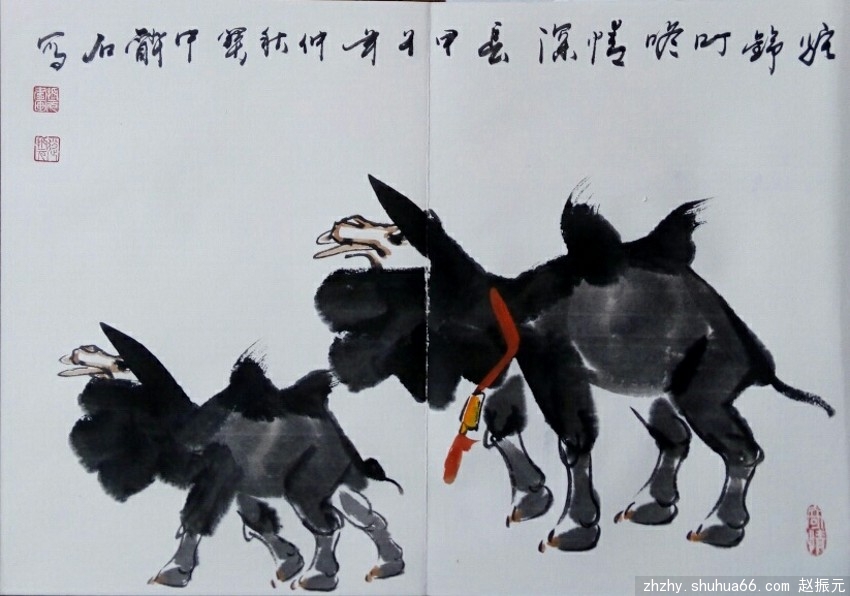 驼铃叮咚情深長甲午年仲秋 中 石写
zhzhy.shuhua66.com 赵振元